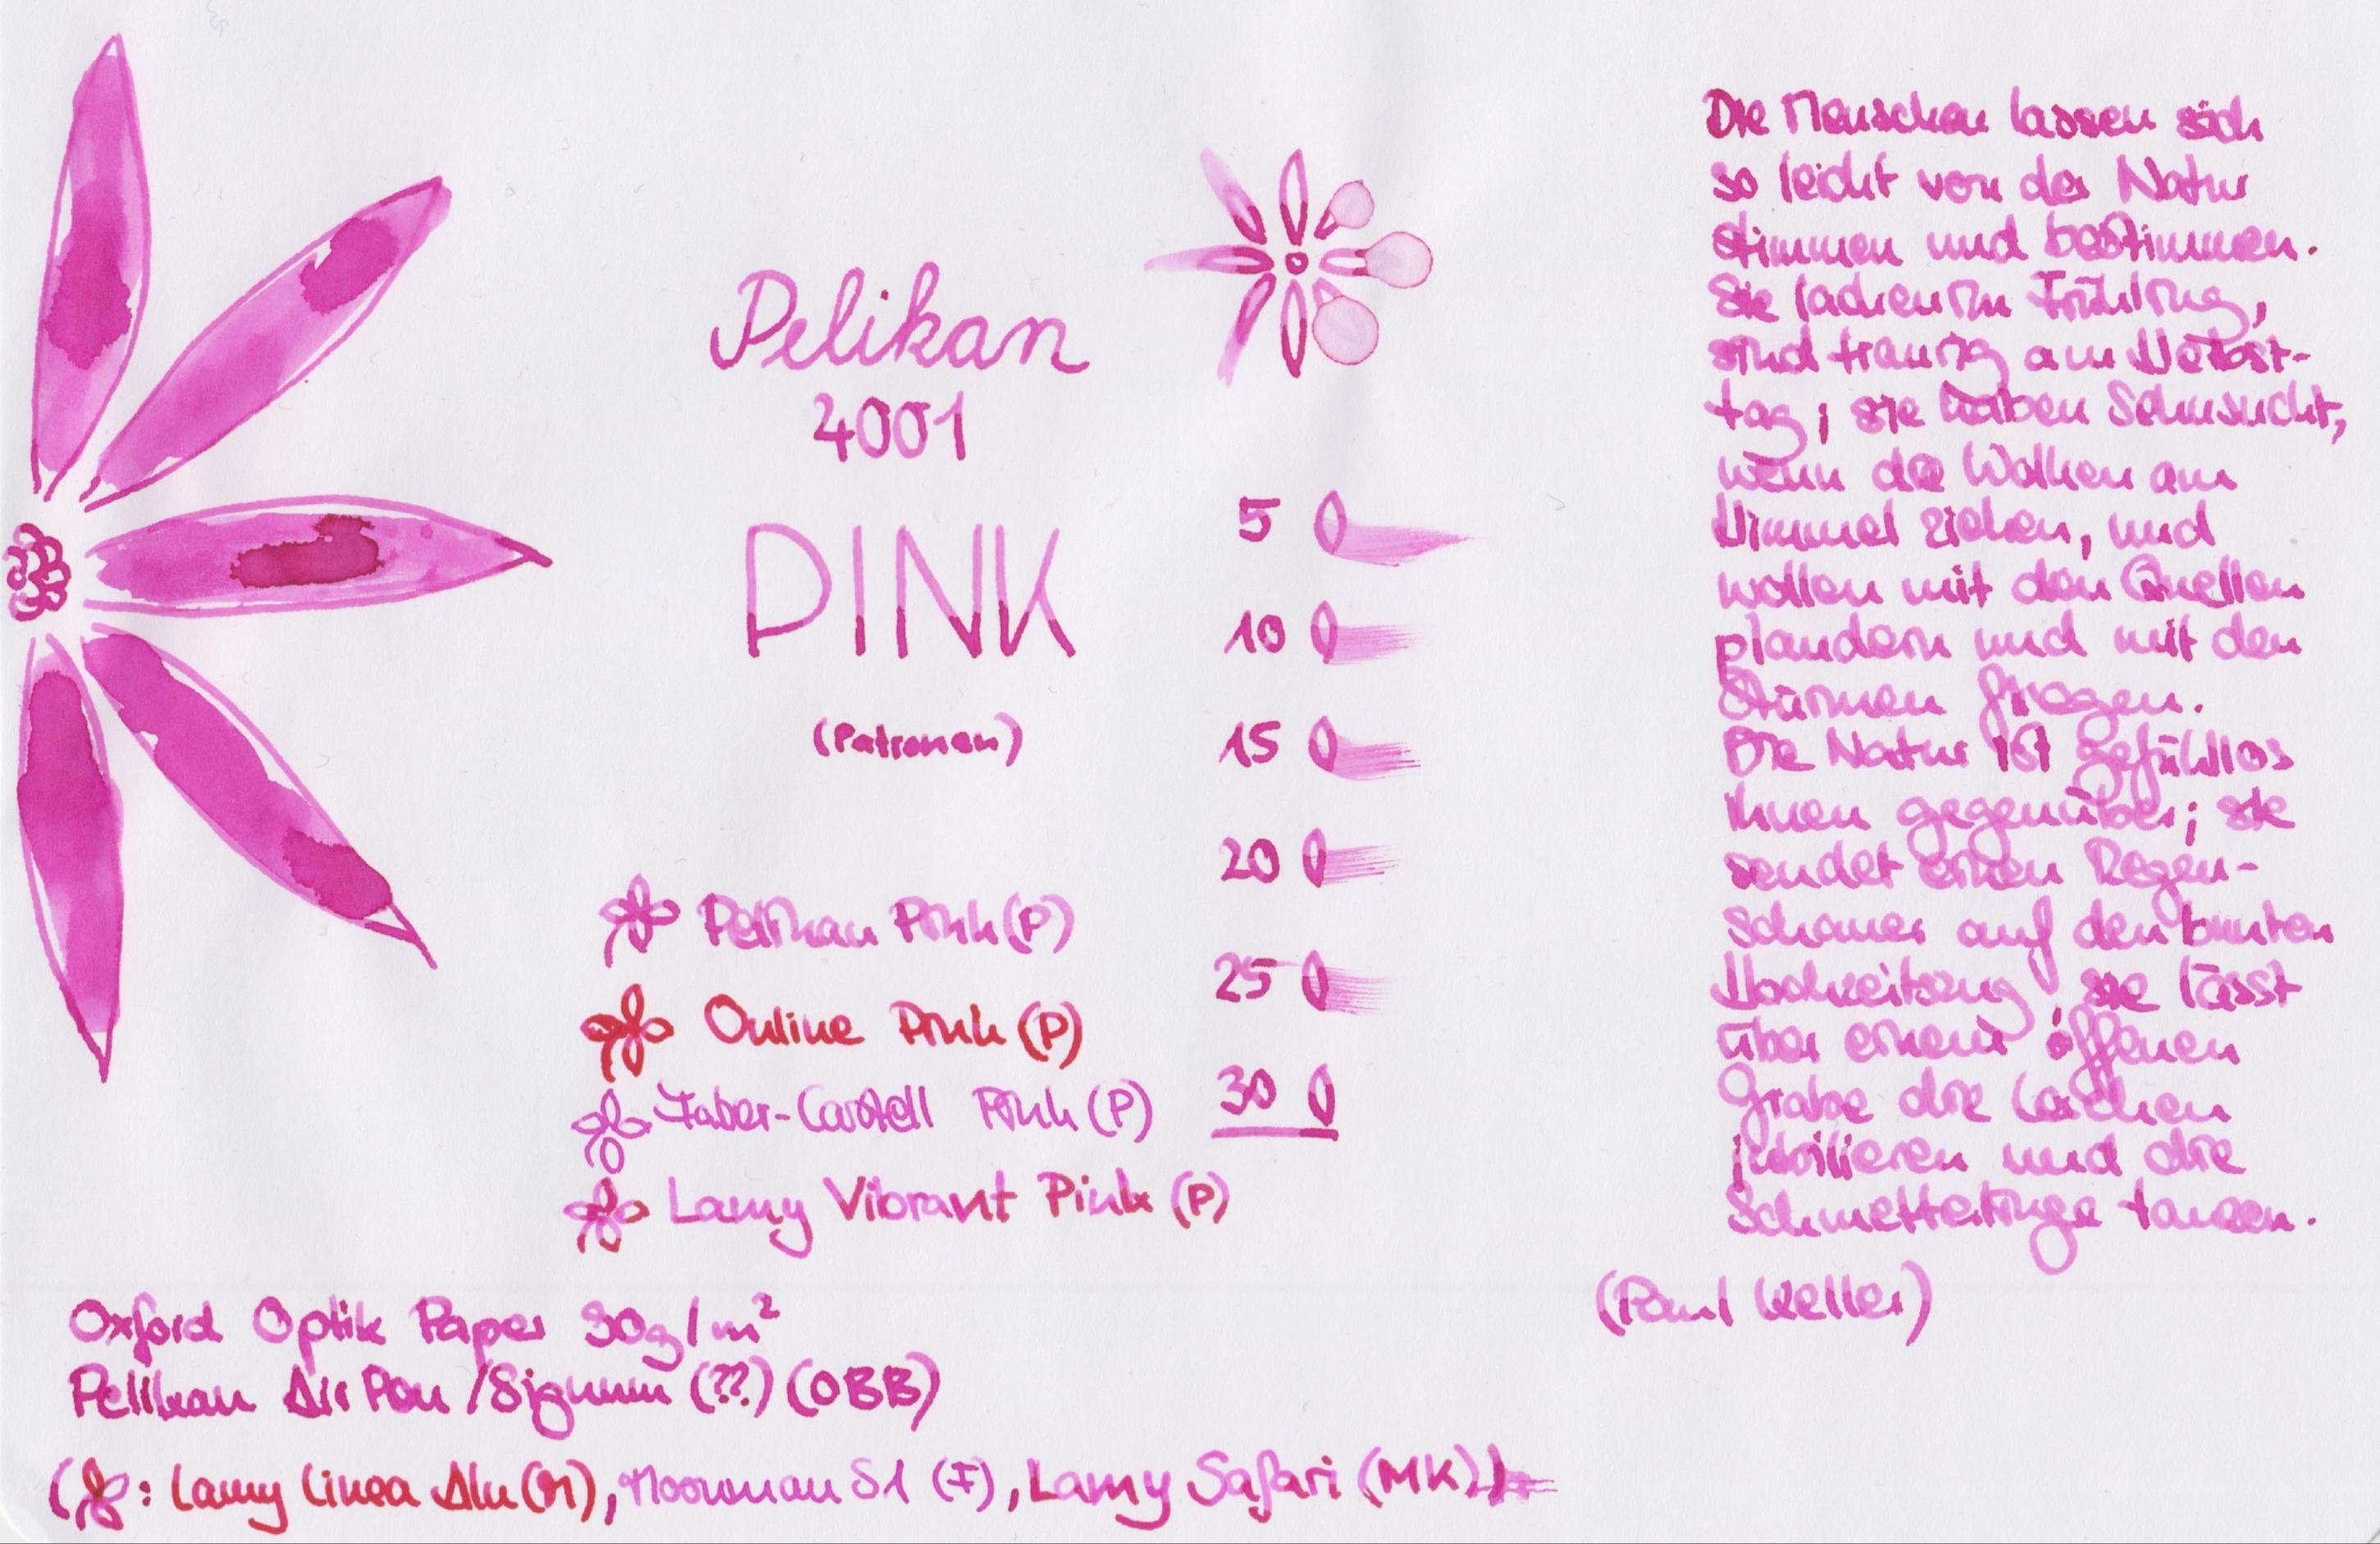 Pelikan
4001
PINK
(Patronen)
5
10
15
20
25
30
Pelikan Pink (P)
Online Pink (P)
Faber-Castell Pink (P)
Lamy Vibrant Pink (P)
Oxford Optik Paper 90g/m²
Pelikan Air Pen/Signum (??) (OBB)
( : Lamy Linea Alu (M), Moonman S1 (F), Lamy Safari (MK))
Die Menschen lassen sich
so leicht von der Natur
stimmen und bestimmen.
Sie lachen im Frühling,
sind traurig am Herbst-
tag; sie haben Sehnsucht,
wenn die Wolken am
Himmel ziehen, und
wollen mit den Quellen
plaudern und mit den
Stürmen fliegen.
Die Natur ist gefühllos
ihnen gegenüber; sie
sendet einen Regen-
schauer auf den bunten
Hochzeitszug; sie lässt
über einem offenen
Grabe die Lerchen
jubilieren und die
Schmetterlinge tanzen.
(Paul Keller)